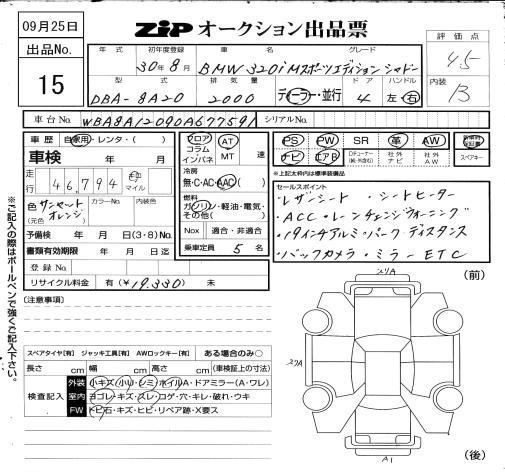 09月25日
ZIP オークション出品票
評価点
4.5
出品No.
15
年式 初年度登録 車名 グレード
30年8月 BMW 320i Mスポーツエディションシャドー
内装
B
型式 排気量 ドア ハンドル
DBA-8A20 2000 ディーラー・並行 4 左・右
車台No. WBA8A12090A677591 シリアルNo.
車歴 自家用・レンタ・( )
フロア コラム インパネ
AT MT 速
PS PW SR 革 AW
ナビ エアB
社外ナビ 社外AW
スペアキー
※上記太枠内は標準装備品
車検 年 月
走行 46,794 km マイル
冷房
無・C・AC・AAC( )
色 サンセットオレンジ (元色)
カラーNo. 内装色
燃料
ガソリン・軽油・電気・その他( )
Nox 適合・非適合
乗車定員 5 名
予備検 年 月 日(3・8)No.
書類有効期限 年 月 日迄
登録No.
リサイクル料金 有(¥19,330) 未
セールスポイント
・レザーシート ・シートヒーター
・ACC・レーンチェンジウォーニング
・19インチアルミ・パークディスタンス
・バックカメラ・ミラーETC
(注意事項)
※ご記入の際はボールペンで強くご記入下さい。
スペアタイヤ[有] ジャッキ工具[有] AWロックキー[有] ある場合のみ○
長さ cm 幅 cm 高さ cm (車検証上の寸法)
検査記入
外装 小キズ・小U・シミ・ホイルA・ドアミラー(A・ワレ)
室内 ヨゴレ・キズ・スレ・コゲ・穴・キレ・破れ・ウキ
FW トビ石・キズ・ヒビ・リペア跡・X要ス
(前)
(後)
A1